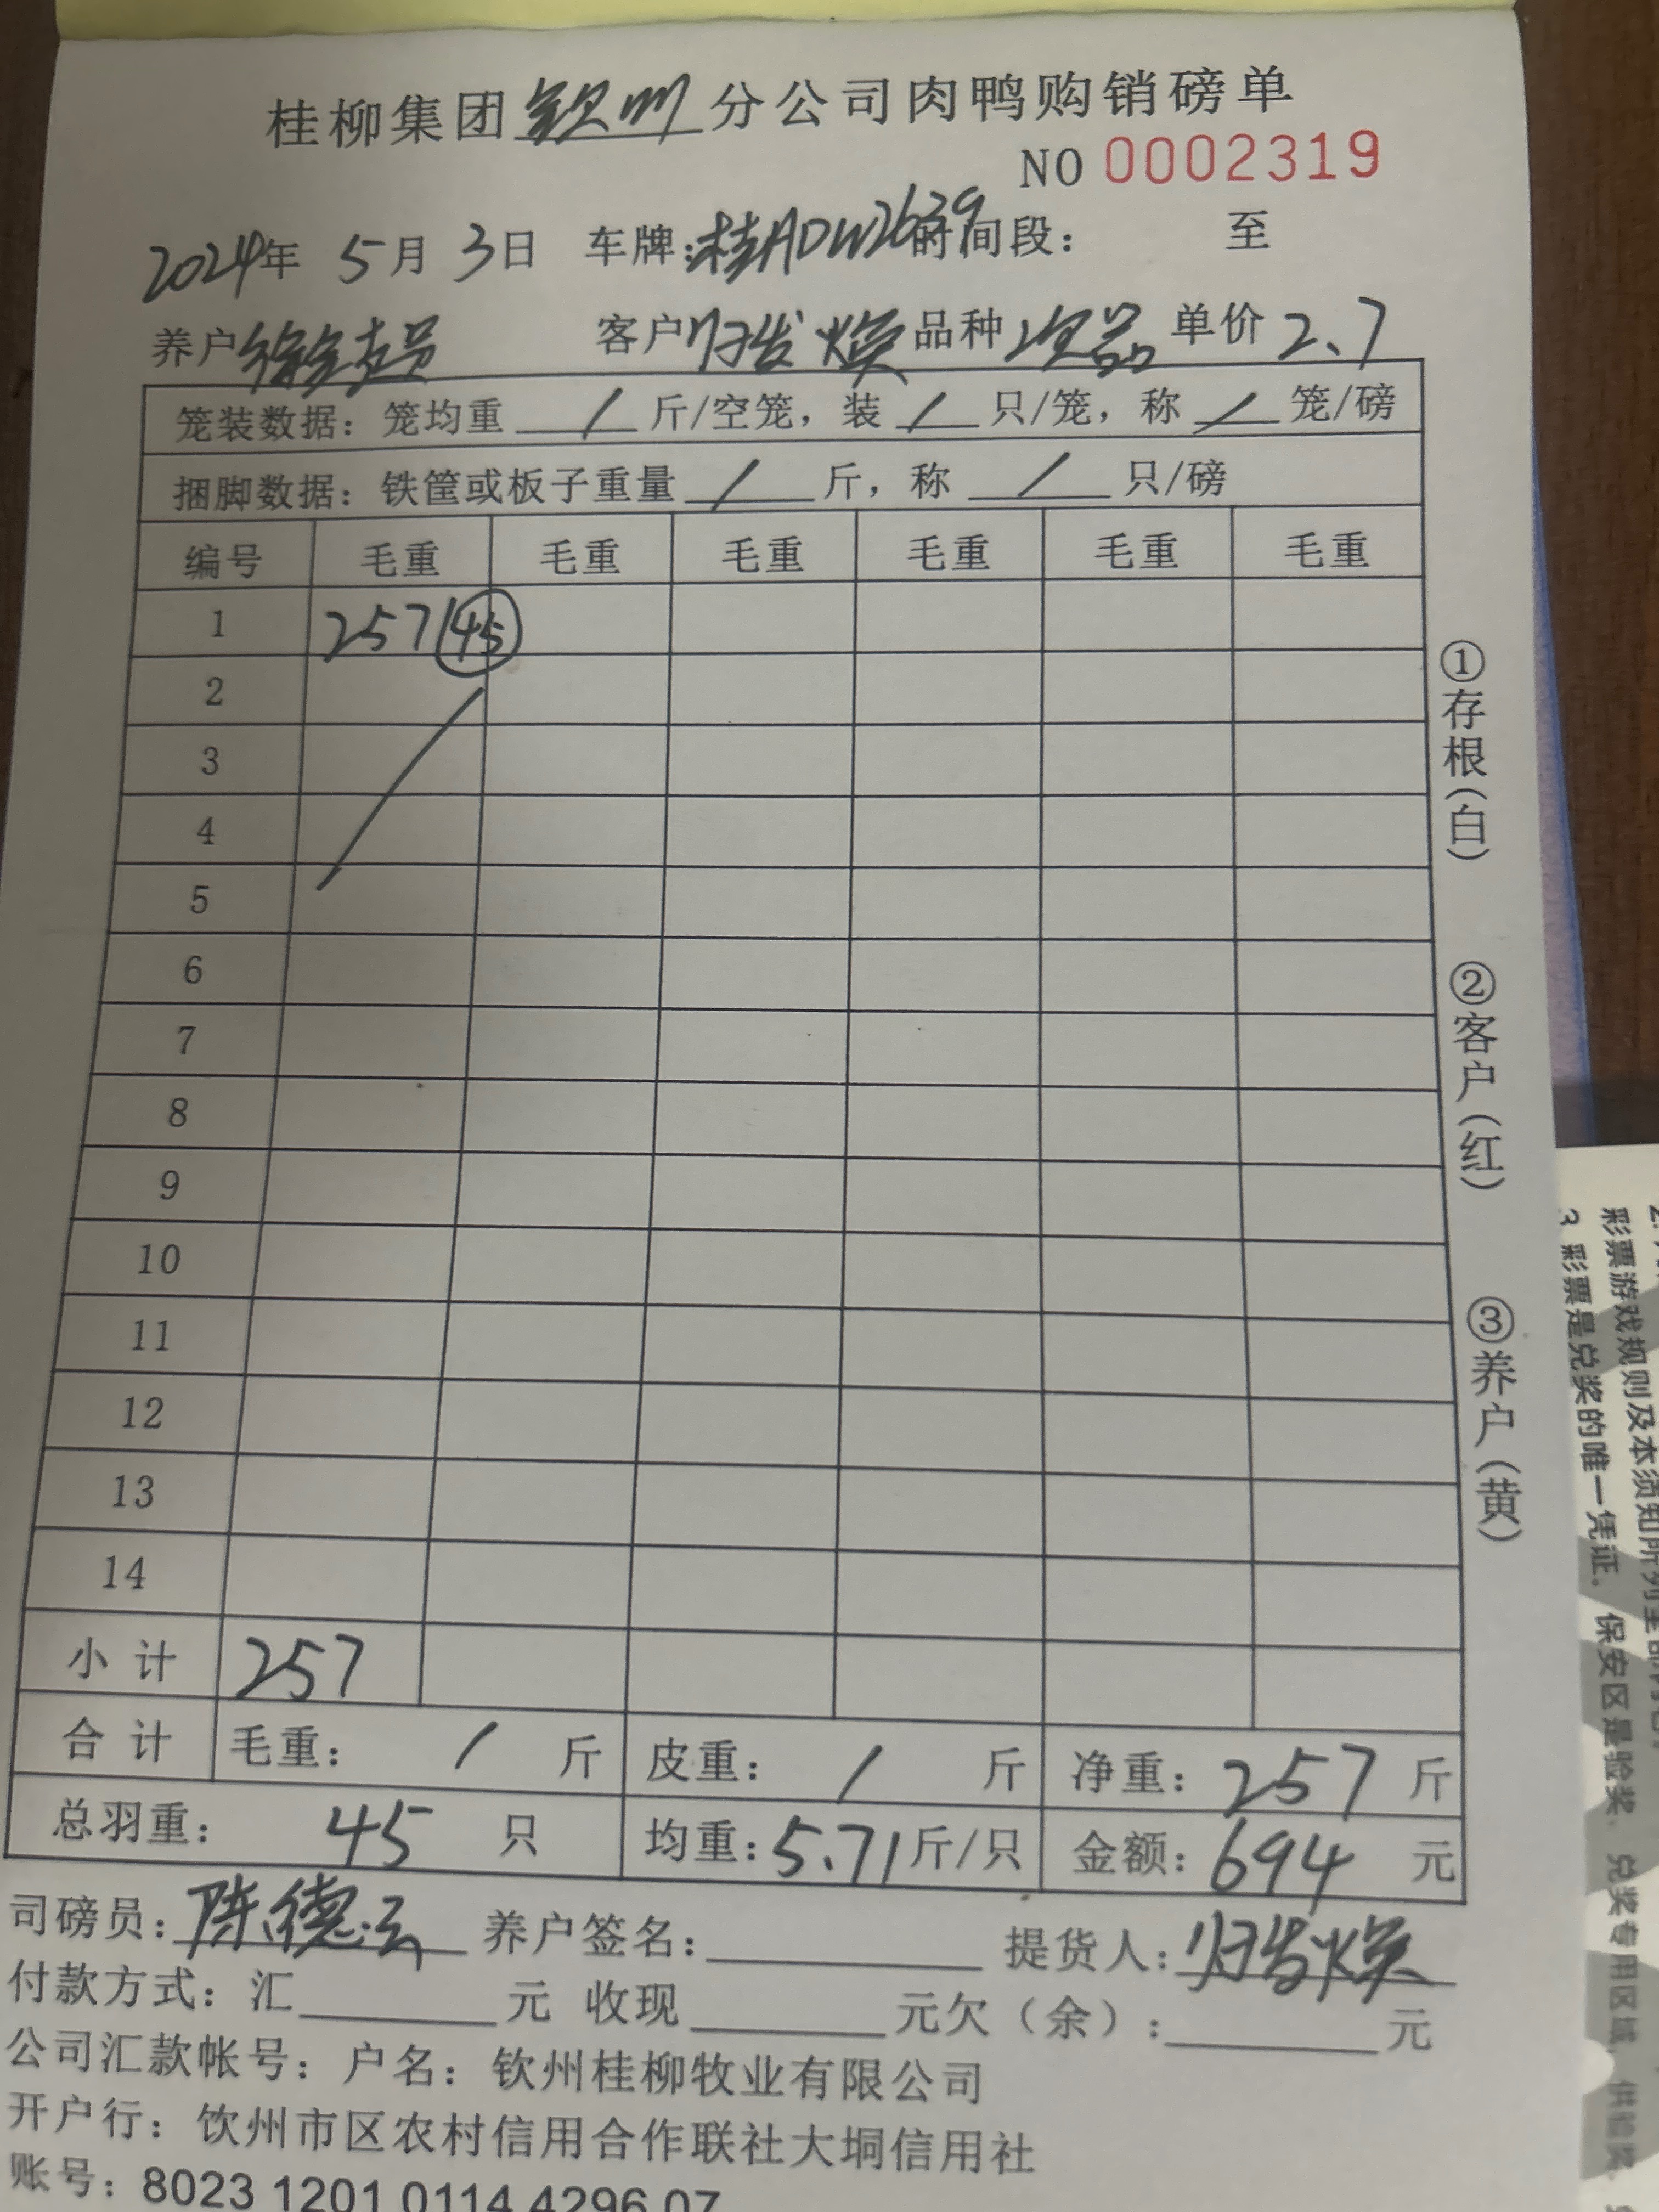 桂柳集团钦州分公司肉鸭购销磅单
NO 0002319
2024年 5月 3日 车牌:桂ADW2639 时间段: 至
养户 客户 归发焕 品种 次品 单价 2.7
笼装数据: 笼均重 / 斤/空笼, 装 / 只/笼, 称 / 笼/磅
捆脚数据: 铁筐或板子重量 / 斤, 称 / 只/磅
编号 毛重 毛重 毛重 毛重 毛重 毛重
1 257 45
2
3
4
5
6
7
8
9
10
11
12
13
14
小计 257
合计 毛重: / 斤 皮重: / 斤 净重: 257 斤
总羽重: 45 只 均重: 5.71 斤/只 金额: 694 元
司磅员: 陈德云 养户签名: 提货人: 归发焕
付款方式: 汇 元 收现 元欠(余): 元
公司汇款帐号: 户名: 钦州桂柳牧业有限公司
开户行: 饮州市区农村信用合作联社大垌信用社
账号: 8023 1201 0114 4296 07
①存根(白)
②客户(红)
③养户(黄)
彩票游戏规则及本须知所列全部内容
3 彩票是兑奖的唯一凭证。保安区是验奖、兑奖专用区域